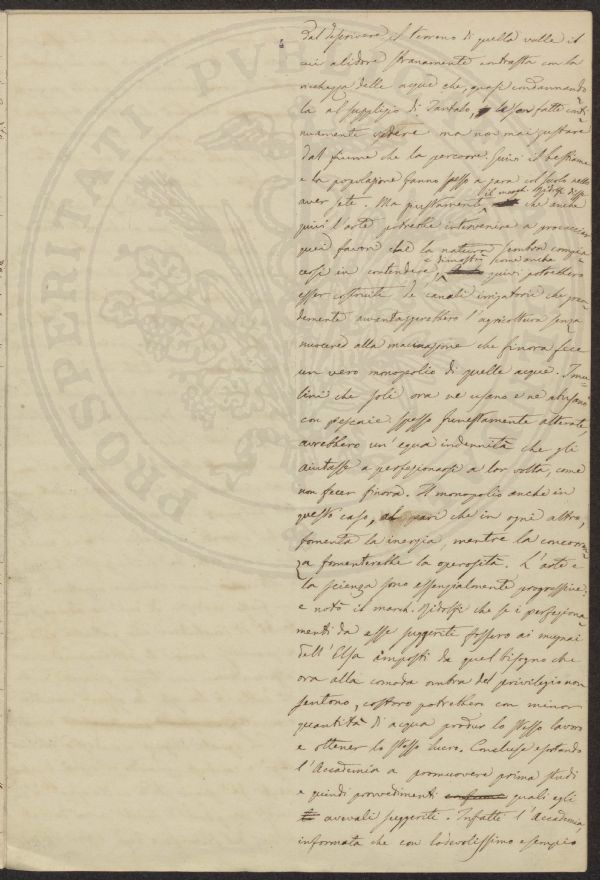 dal descrivere il terreno di quella valle il
cui alidore stranamente contrasta con la
ricchezza delle acque che, quasi condannando
la al supplizio di Tantalo, le son fatte conti
nuamente vedere ma non mai gustare
dal fiume che la percorre. Quivi il bestiame
e la popolazione fanno spesso a gara col suolo nello
aver sete. Ma giustamente il march. Ridolfi disse che anche
quivi l'arte potrebbe intervenire a procacciar
quei favori che la natura sembra compia
cersi in contendere, e dimostrò come anche quivi potrebbero
esser costruite de' canali irrigatorii che gran
demente avvantaggerebbero l'agricoltura senza
nuocere alla macinazione che finora fece
un vero monopolio di quelle acque. I mu=
lini che soli ora ne usano e ne abusano
con pescaie spesso funestamente alterate,
avrebbero un'equa indennità che gli
aiutasse a perfezionarsi a lor volta, come
non fecer finora. Il monopolio anche in
questo caso, al pari che in ogni altro,
fomenta la inerzia, mentre la concorren
za fomenterebbe la operosità. L'arte e
la scienza sono essenzialmente progressive:
e notò il march. Ridolfi che se i perfeziona
menti da esse suggerite fossero ai mugnai
dell'Elsa imposti da quel bisogno che
ora alla comoda ombra del privilegio non
sentono, costoro potrebbero con minor
quantità di acqua produr lo stesso lavoro
e ottener lo stesso lucro. Concluse esortando
l'Accademia a promuovere prima studi
e quindi provvedimenti quali egli
avevali suggerite. Infatti l'Accademia,
informata che con lodevolissimo esempio
PROSPERITATI PVBLICAE